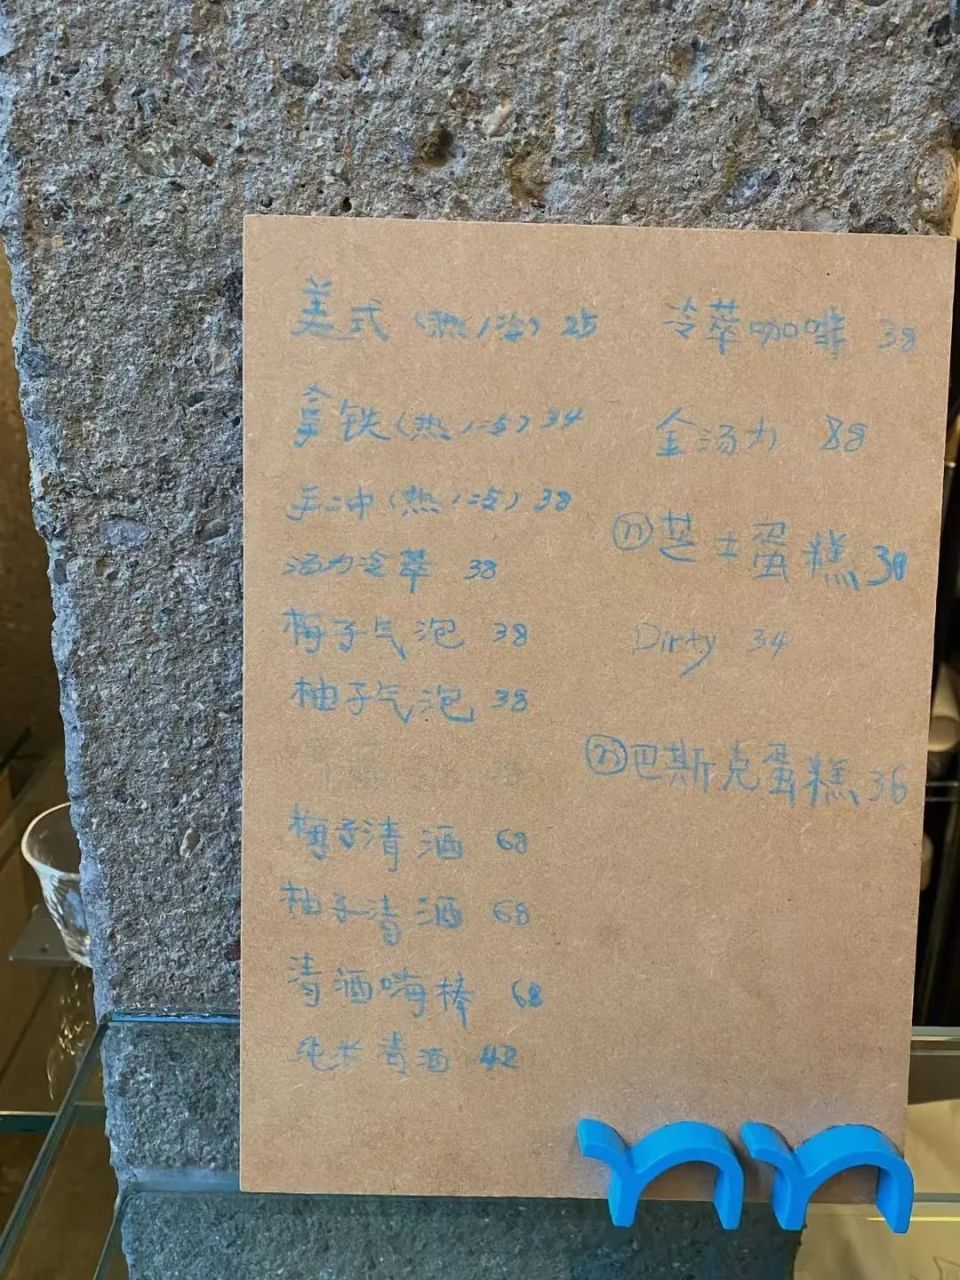 美式(热/冷) 25
拿铁(热/冷) 34
手冲(热/冷) 38
汤力冷萃 38
梅子气泡 38
柚子气泡 38
梅子清酒 68
柚子清酒 68
清酒嗨棒 68
纯米清酒 42
冷萃咖啡 38
金汤力 88
芝士蛋糕
Dirty 34
巴斯克蛋糕 36